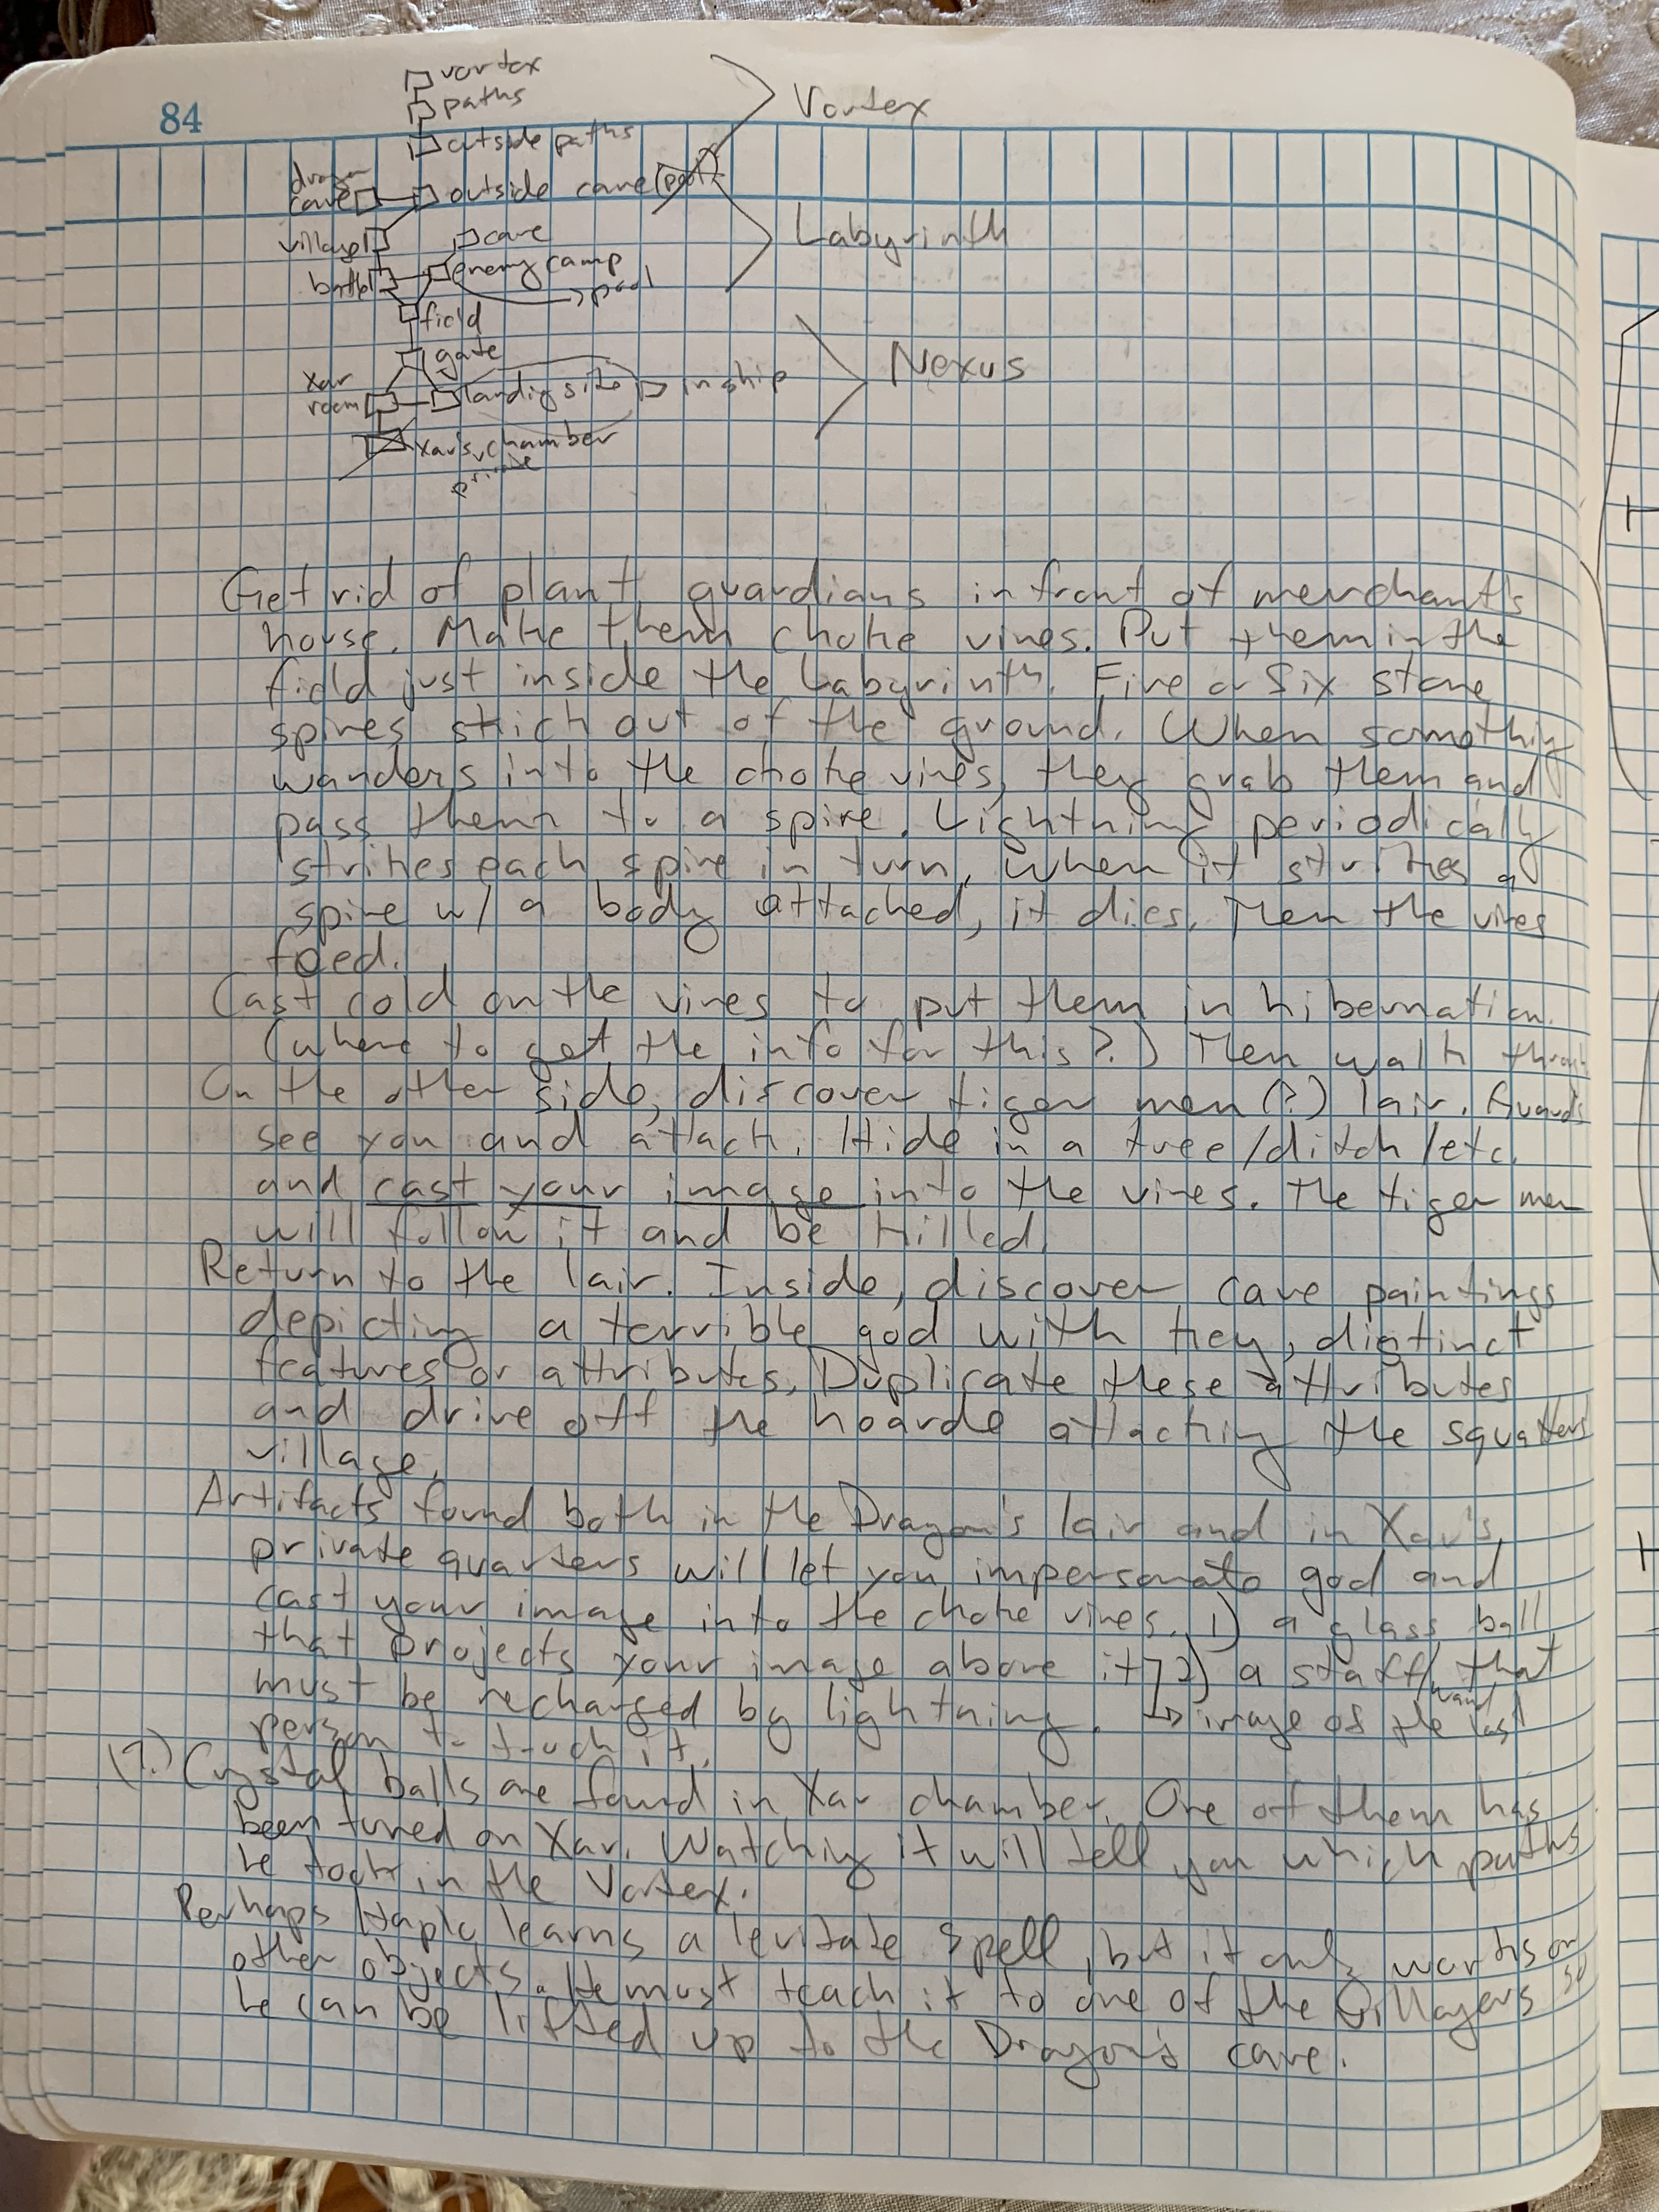 84
vortex
paths
Vortex
outside paths
dragon
cave
outside cave (pool)
village
cave
Labyrinth
battle
enemy camp
pool
field
gate
Nexus
xar
room
landing site
in ship
Xar's chamber
private
Get rid of plant guardians in front of merchant's
house. Make them choke vines. Put them in the
field just inside the Labyrinth. Five or Six stone
spires stick out of the ground. When something
wanders into the choke vines, they grab them and
pass them to a spire. Lightning periodically
strikes each spire in turn, when it strikes a
spire w/ a body attached, it dies. Then the vines
feed.
Cast cold on the vines to put them in hibernation.
(where to get the info for this?) Then walk through
On the other side, discover tiger men (?) lair. Guards
see you and attack. Hide in a tree/ditch/etc.
and cast your image into the vines. The tiger men
will follow it and be killed.
Return to the lair. Inside, discover cave paintings
depicting a terrible god with key, distinct
features or attributes. Duplicate these attributes
and drive off the hoarde attacking the squatters'
village.
Artifacts found both in the Dragon's lair and in Xar's
private quarters will let you impersonate god and
cast your image into the choke vines. 1) a glass ball
that projects your image above it 2) a staff/wand that
must be recharged by lightning. → image of the last
person to touch it.
(?) Crystal balls are found in Xar chamber. One of them has
been tuned on Xar. Watching it will tell you which paths
he took in the Vortex.
Perhaps Haplo learns a levitate spell, but it only works on
other objects. He must teach it to one of the villagers so
he can be lifted up to the Dragon's cave.